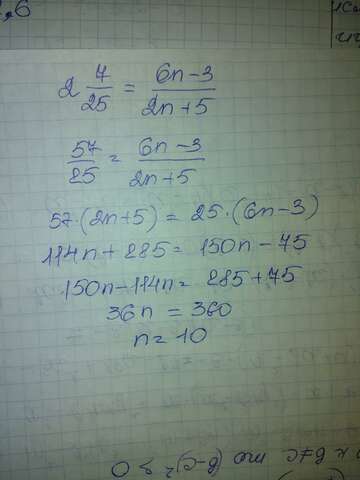 ,6
2 7/25 = 6n-3/2n+5
57/25 = 6n-3/2n+5
57·(2n+5) = 25·(6n-3)
114n+285 = 150n-75
150n-114n = 285+75
36n = 360
n = 10